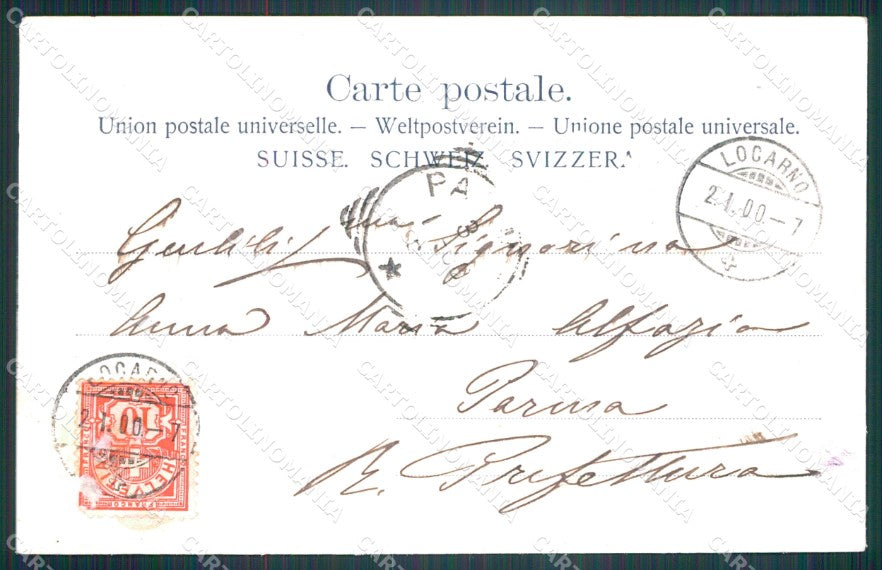 Carte postale.
Union postale universelle. — Weltpostverein. — Unione postale universale.
SUISSE. SCHWEIZ. SVIZZERA
LOCARNO
2.1.00.—7
PA
Gentilisma Signorina
Anna Maria Alfazio
Parma
R. Prefettura
LOCARNO
2.1.00.—7
10
HELVETIA
FRANCO
CARTOLINOMANIA